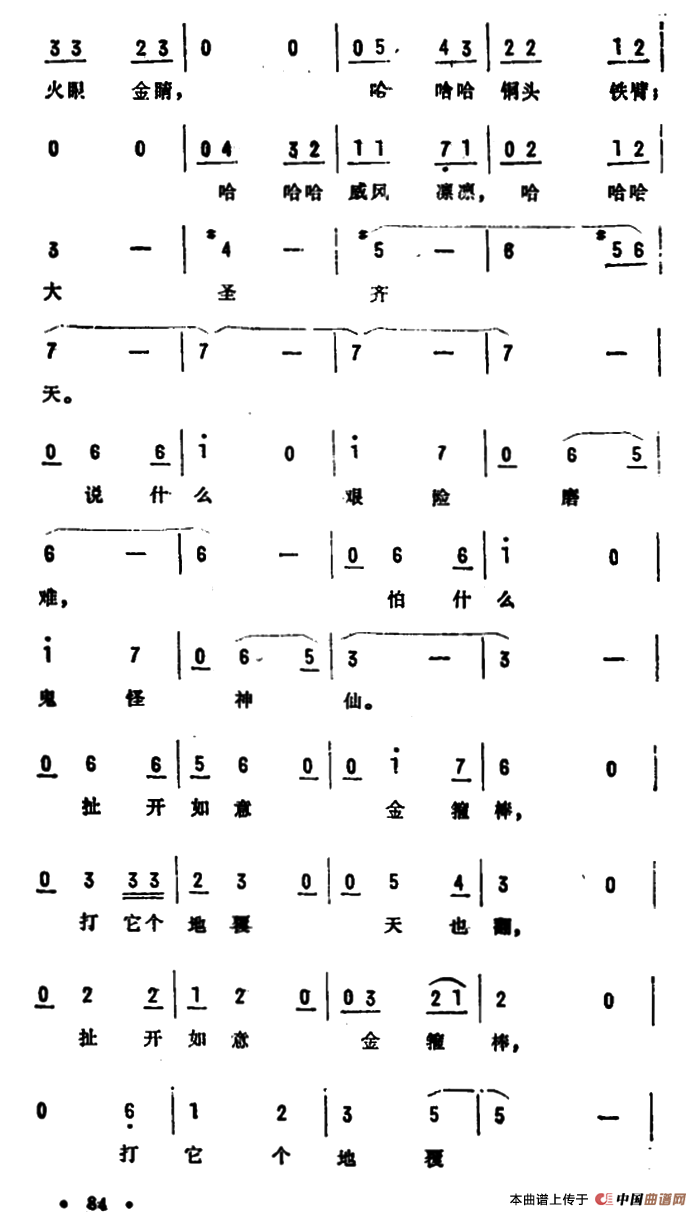 3 3 2 3 | 0 0 | 0 5 4 3 | 2 2 1 2 |
火眼 金睛, 哈 哈哈 铜头 铁臂;
0 0 | 0 4 3 2 | 1 1 7 1 | 0 2 1 2 |
哈 哈哈 威风 凛凛, 哈 哈哈
3 — | #4 — | #5 — | 6 #5 6 |
大 圣 齐
7 — | 7 — | 7 — | 7 — |
天。
0 6 6 | i 0 | i 7 | 0 6 5 |
说 什 么 艰 险 磨
6 — | 6 — | 0 6 6 | i 0 |
难, 怕 什 么
i 7 | 0 6 5 | 3 — | 3 — |
鬼 怪 神 仙。
0 6 6 | 5 6 0 | 0 i 7 | 6 0 |
扯 开 如 意 金 箍 棒,
0 3 3 3 | 2 3 0 | 0 5 4 | 3 0 |
打 它个 地 覆 天 也 翻,
0 2 2 | 1 2 0 | 0 3 2 1 | 2 0 |
扯 开 如 意 金 箍 棒,
0 6 | 1 2 | 3 5 | 5 — |
打 它 个 地 覆
• 84 •
本曲谱上传于 中国曲谱网